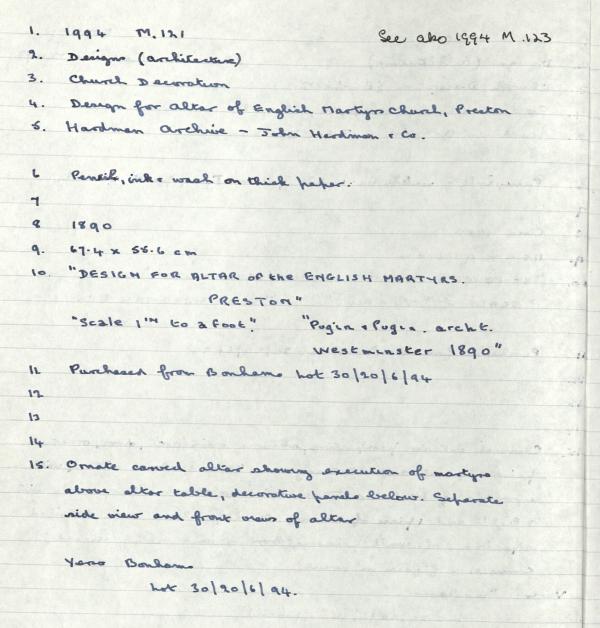 1. 1994 M.121 See also 1994 M.123
2. Designs (architecture)
3. Church Decoration
4. Design for altar of English Martyrs Church, Preston
5. Hardman Archive - John Hardman & Co.
6 Pencil, ink & wash on thick paper.
7
8 1890
9. 67.4 x 55.6 cm
10. "DESIGN FOR ALTAR OF the ENGLISH MARTYRS.
PRESTON"
"Scale 1 IN to a foot." "Pugin & Pugin. archt.
Westminster 1890"
11 Purchased from Bonhams Lot 30/20/6/94
12
13
14
15. Ornate carved altar showing execution of martyrs
above altar table, decorative panels below. Separate
side view and front views of altar
Bonhams
Lot 30/20/6/94.